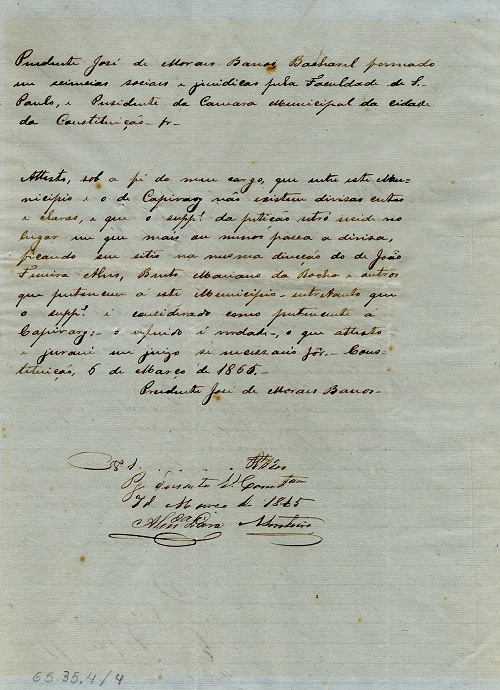 Prudente José de Moraes Barros Bacharel formado
em sciencias sociais e juridicas pela Faculdade de S.
Paulo, e Presidente da Camara Municipal da cidade
da Constituição
Attesto, sob a fé do meu cargo, que entre este Mu=
nicipio e o de Capivary não existem divisas certas
e claras, e que o supp.e da petição retró reside no
lugar em que mais ou menos passa a divisa,
ficando seu sitio na mesma direcção do de João
Ferreira Alves, Bento Marianno da Rocha e outros
que pertencem á este Municipio entretanto que
o supp.e é considerado como pertencente á
Capivary; o referido é verdade, o que attesto
e jurarei em juizo se necessario fôr. Cons=
tituição, 6 de Março de 1865.
Prudente José de Moraes Barros
Rs
Março de 1865
Monteiro
65.35.4/4